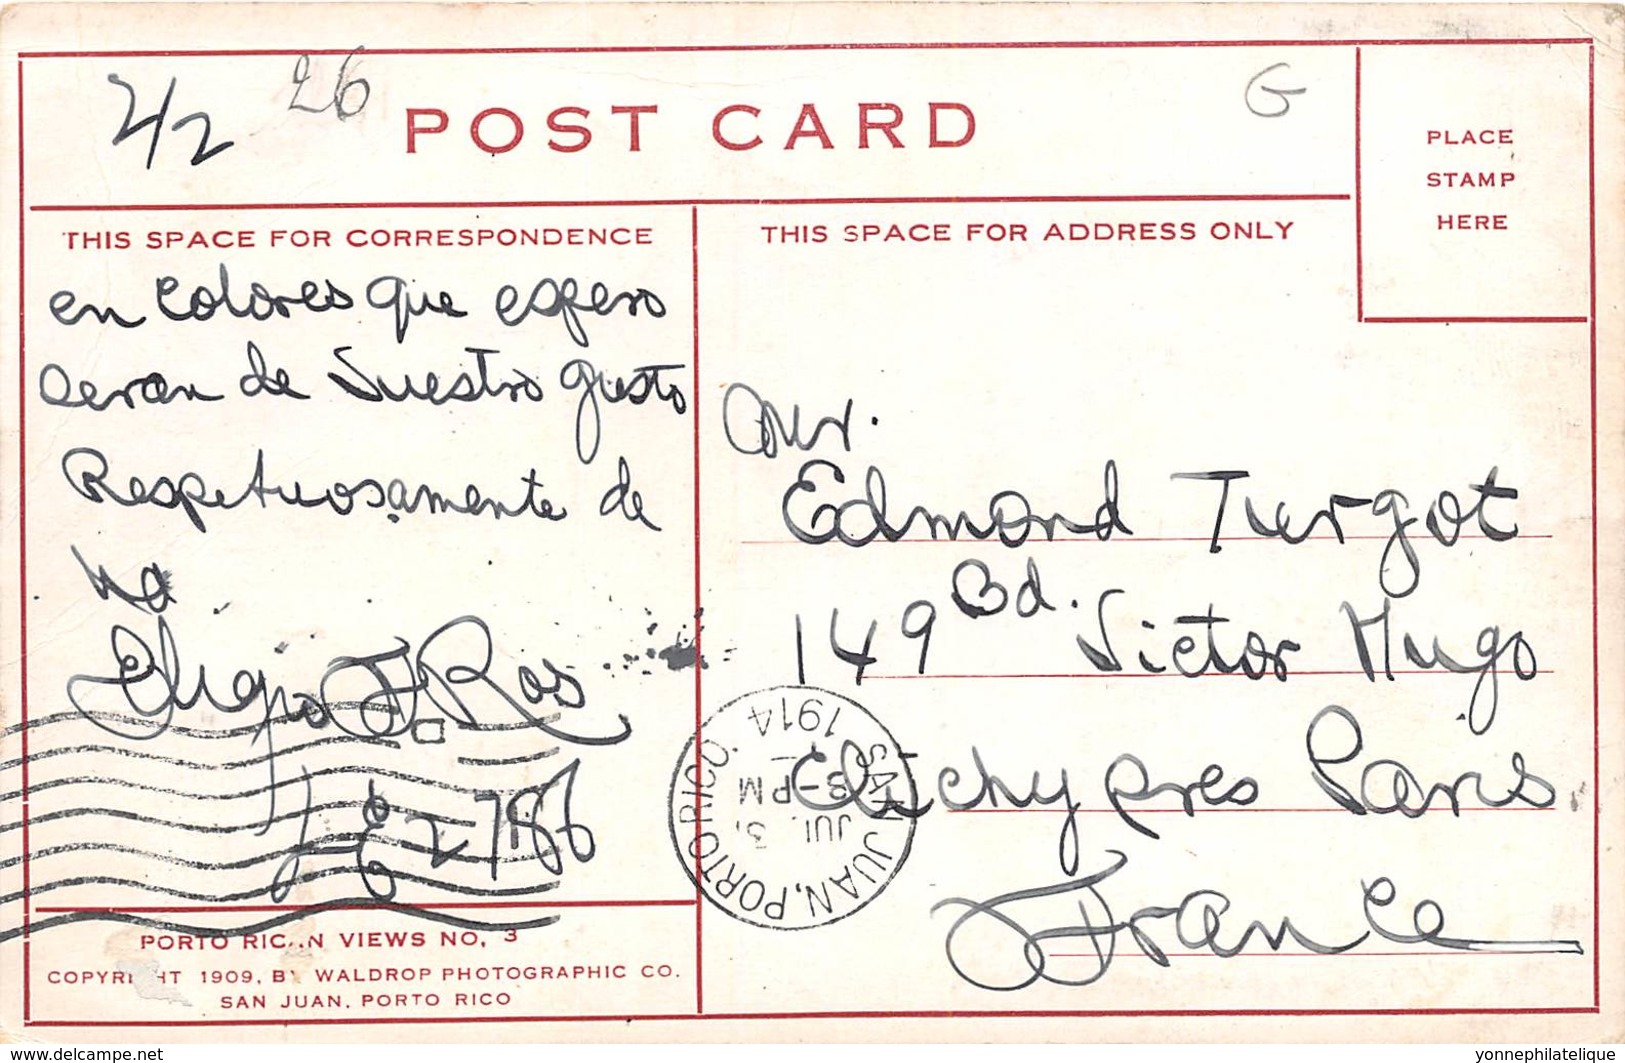 2/2 26
G
POST CARD
PLACE
STAMP
HERE
THIS SPACE FOR CORRESPONDENCE
THIS SPACE FOR ADDRESS ONLY
en colores que espero
seran de Vuestro gusto
Respetuosamente de
Ud
Eligio F. Ros
Mr.
Edmond Turgot
149 Bd. Victor Hugo
Clichy pres Paris
France
SAN JUAN, PORTO RICO.
JUL 3,
3-PM
1914
PORTO RIC..N VIEWS NO. 3
COPYRI HT 1909, BY WALDROP PHOTOGRAPHIC CO.
SAN JUAN. PORTO RICO
www.delcampe.net
yonnephilatelique